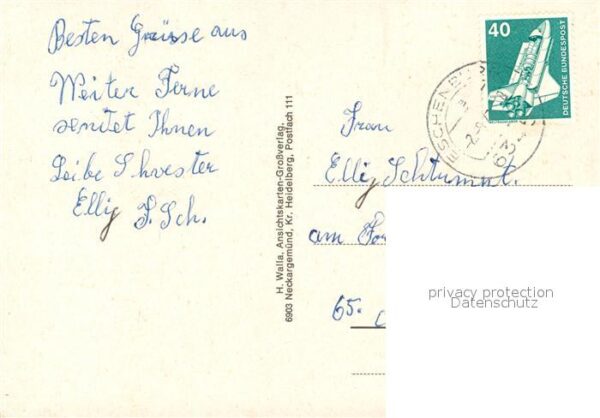 Besten Grüsse aus
Weiter Ferne
sentet Ihnen
Leibe Shvester
Elly J. Sch.
H. Walla, Ansichtskarten-Großverlag,
6903 Neckargemünd, Kr. Heidelberg, Postfach 111
40
DEUTSCHE BUNDESPOST
Frau
Elly
am
65.
privacy protection
Datenschutz